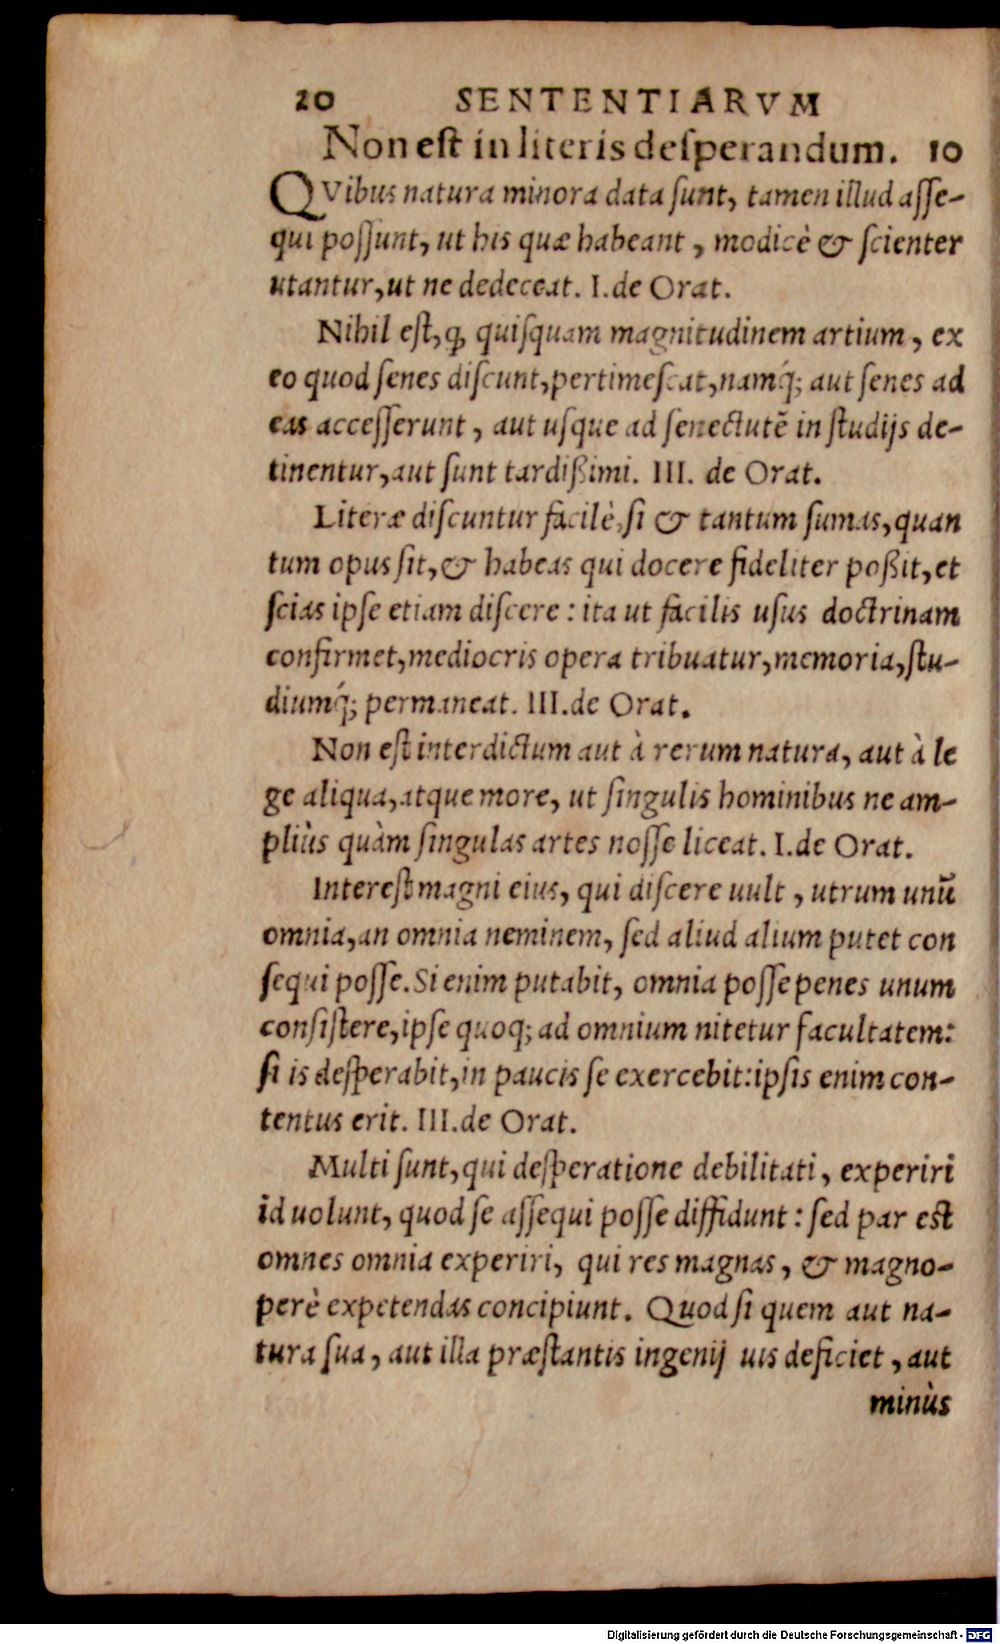 20 SENTENTIARVM
Non est in literis desperandum. 10
QVibus natura minora data sunt, tamen illud asse-
qui possunt, ut his quæ habeant, modicè & scienter
utantur, ut ne dedeceat. I. de Orat.
Nihil est, ꝙ quisquam magnitudinem artium, ex
eo quod senes discunt, pertimescat, namq́; aut senes ad
eas accesserunt, aut usque ad senectutē in studijs de-
tinentur, aut sunt tardißimi. III. de Orat.
Literæ discuntur facilè, si & tantum sumas, quan
tum opus sit, & habeas qui docere fideliter poßit, et
scias ipse etiam discere: ita ut facilis usus doctrinam
confirmet, mediocris opera tribuatur, memoria, stu-
diumq́; permaneat. III. de Orat.
Non est interdictum aut à rerum natura, aut à le
ge aliqua, atque more, ut singulis hominibus ne am-
pliùs quàm singulas artes nosse liceat. I. de Orat.
Interest magni eius, qui discere uult, utrum unū
omnia, an omnia neminem, sed aliud alium putet con
sequi posse. Si enim putabit, omnia posse penes unum
consistere, ipse quoq; ad omnium nitetur facultatem:
si is desperabit, in paucis se exercebit: ipsis enim con-
tentus erit. III. de Orat.
Multi sunt, qui desperatione debilitati, experiri
id uolunt, quod se assequi posse diffidunt: sed par est
omnes omnia experiri, qui res magnas, & magno-
perè expetendas concipiunt. Quod si quem aut na-
tura sua, aut illa præstantis ingenij uis deficiet, aut
minùs
Digitalisierung gefördert durch die Deutsche Forschungsgemeinschaft - DFG